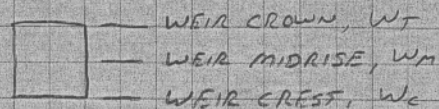 WEIR CROWN, WT
WEIR MIDRISE, WM
WEIR CREST, WC